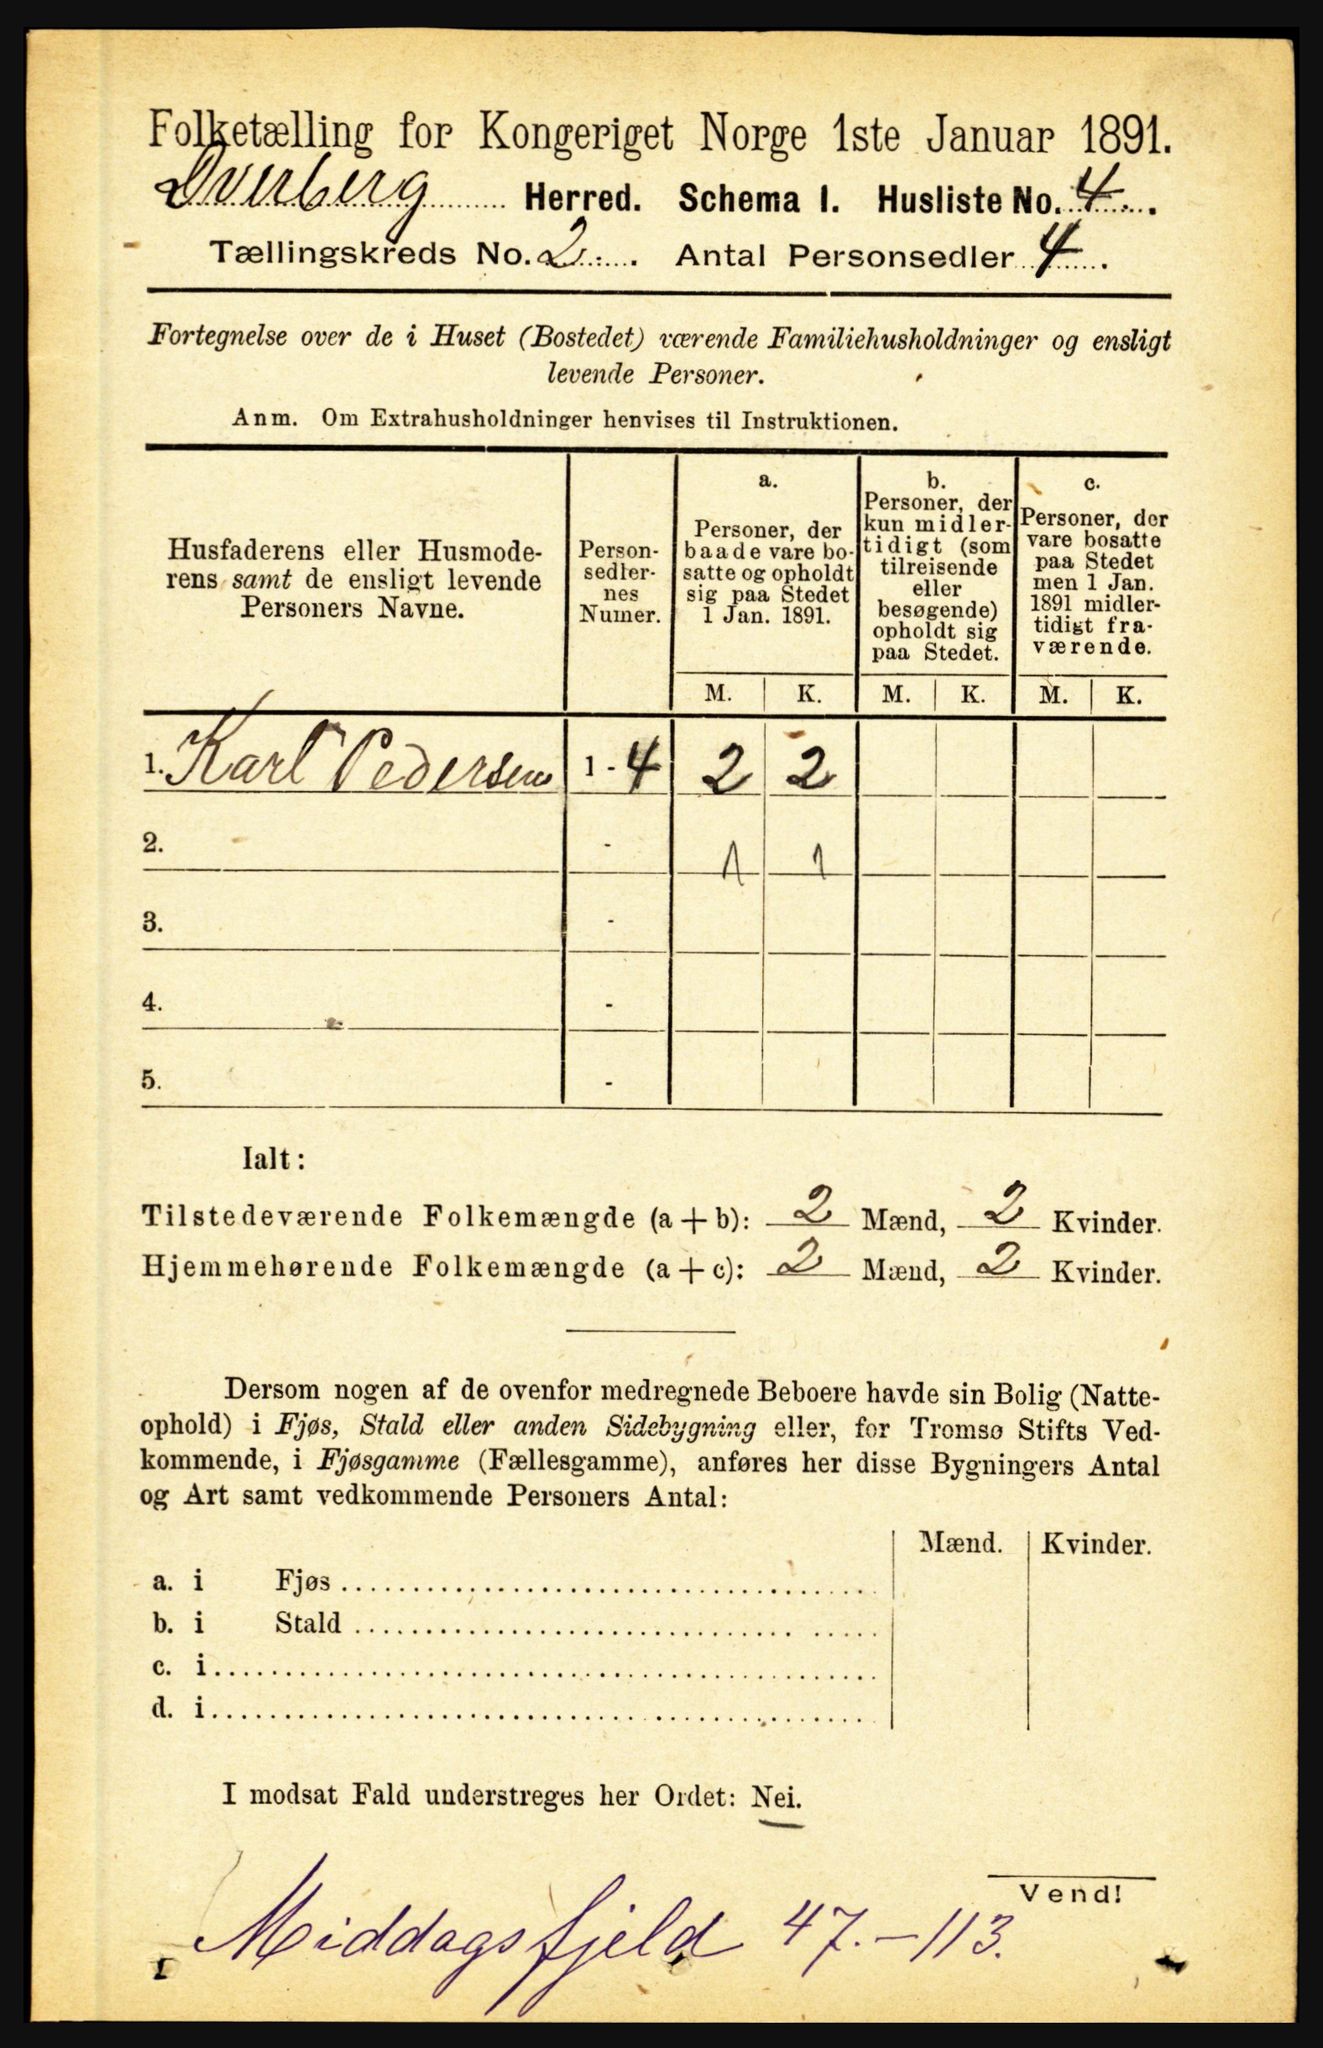 Folketælling for Kongeriget Norge 1ste Januar 1891.
Dverberg Herred. Schema I. Husliste No. 4.
Tællingskreds No. 2. Antal Personsedler 4.
Fortegnelse over de i Huset (Bostedet) værende Familiehusholdninger og ensligt
levende Personer.
Anm. Om Extrahusholdninger henvises til Instruktionen.
Husfaderens eller Husmode-
rens samt de ensligt levende
Personers Navne.
Person-
sedler-
nes
Numer.
a.
Personer, der
baade vare bo-
satte og opholdt
sig paa Stedet
1 Jan. 1891.
b.
Personer, der
kun midler-
tidigt (som
tilreisende
eller
besøgende)
opholdt sig
paa Stedet.
c.
Personer, der
vare bosatte
paa Stedet
men 1 Jan.
1891 midler-
tidigt fra-
værende.
M. K. M. K. M. K.
1. Karl Pedersen 1 - 4 2 2
2. - 1 1
3. -
4. -
5. -
Ialt:
Tilstedeværende Folkemængde (a + b): 2 Mænd, 2 Kvinder.
Hjemmehørende Folkemængde (a + c): 2 Mænd, 2 Kvinder.
Dersom nogen af de ovenfor medregnede Beboere havde sin Bolig (Natte-
ophold) i Fjøs, Stald eller anden Sidebygning eller, for Tromsø Stifts Ved-
kommende, i Fjøsgamme (Fællesgamme), anføres her disse Bygningers Antal
og Art samt vedkommende Personers Antal:
Mænd. Kvinder.
a. i Fjøs
b. i Stald
c. i
d. i
I modsat Fald understreges her Ordet: Nei.
Vend!
Middagsfjeld 47.-113.